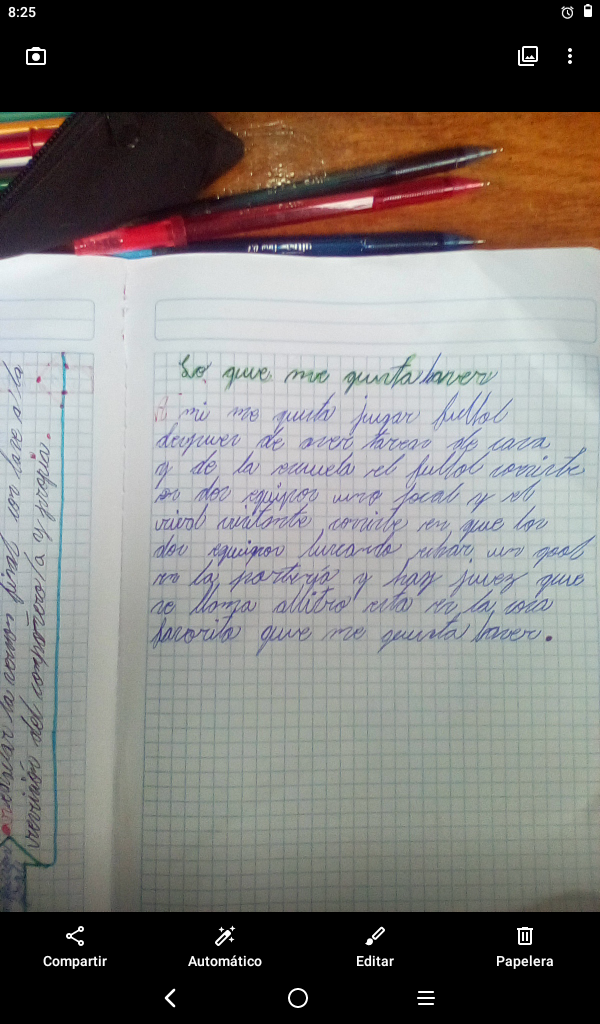 8:25
Lo que me gusta haver
A mi me gusta jugar futbol
despues de aver tarear de casa
y de la escuela el futbol consiste
en dos equipos uno local y el
visitante consiste en que los
dos equipos buscando echar un gool
en la portería y hay juez que
se llama albitro esta es la cosa
favorita que me gusta haver.
la version final con base a la
revisión del compañero/a y propia.
Compartir
Automático
Editar
Papelera